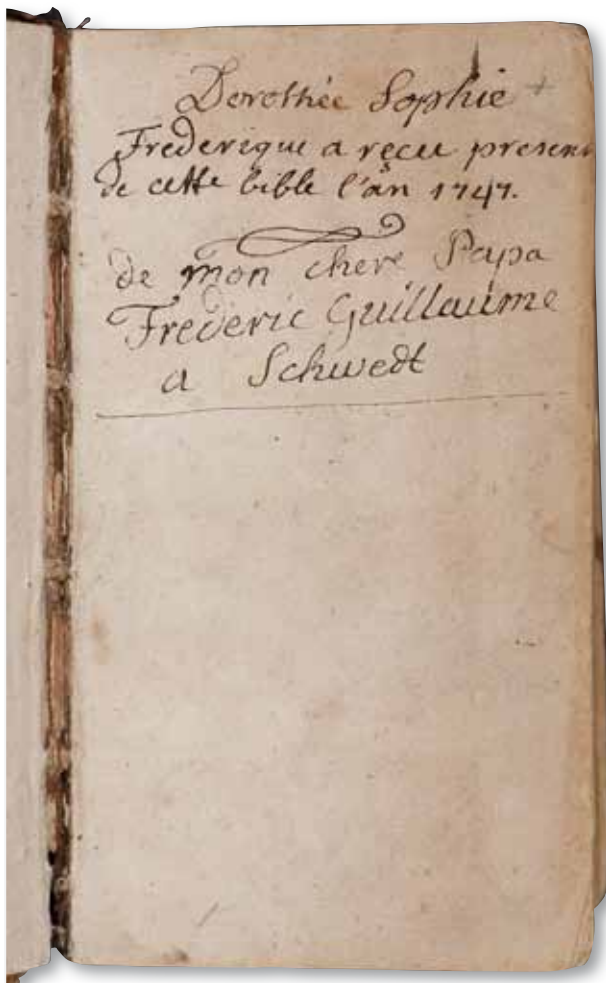 Dorothée Sophie
Frederique a reçu present
de cette bible l'an 1747.
de mon chere Papa
Frederic Guillaume
a Schwedt